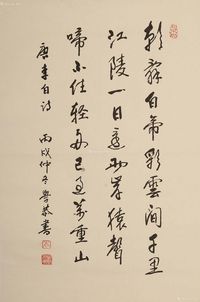 朝辞白帝彩雲间千里
江陵一日還兩岸猿聲
啼不住轻舟已過萬重山
唐李白诗 丙戌仲冬 書